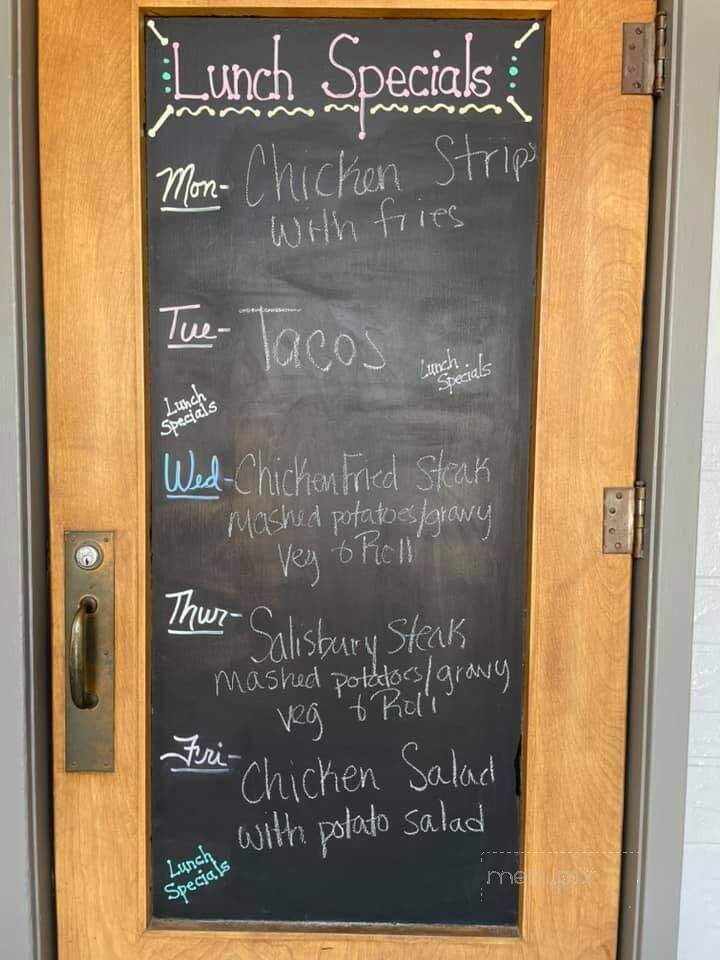 Lunch Specials
Mon- Chicken Strips
with fries
Tue- Tacos
Lunch
Specials
Lunch
Specials
Wed- Chicken Fried Steak
mashed potatoes/gravy
veg & Roll
Thur- Salisbury Steak
mashed potatoes/gravy
veg & Roll
Fri- Chicken Salad
with potato salad
Lunch
Specials